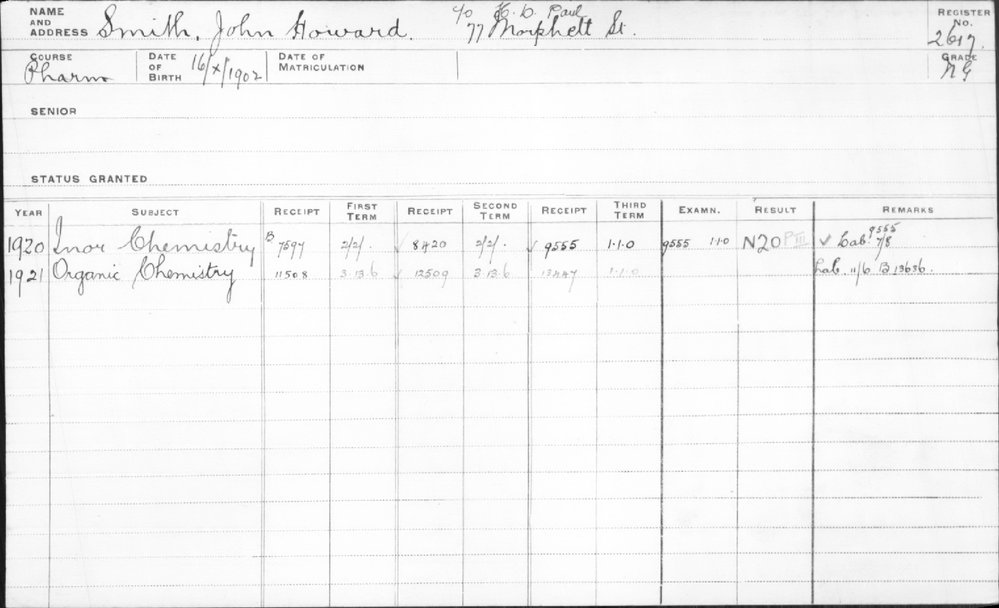 NAME AND ADDRESS Smith, John Howard. c/o H. D. Paul REGISTER No.
77 Morphett St. 2617.
COURSE Pharm DATE OF BIRTH 16/X/1902 DATE OF MATRICULATION GRADE NG
SENIOR
STATUS GRANTED
YEAR SUBJECT RECEIPT FIRST TERM RECEIPT SECOND TERM RECEIPT THIRD TERM EXAMN. RESULT REMARKS
1920 Inor Chemistry B 7597 2/2/. ✓ 8420 2/2/. ✓ 9555 1·1·0 9555 1·1·0 N20 P III ✓ Lab. 9555 7/8
1921 Organic Chemistry 11508 3.13.6 ✓ 12509 3.13.6 13447 1·1·0 Lab. 11/6 B 13636.